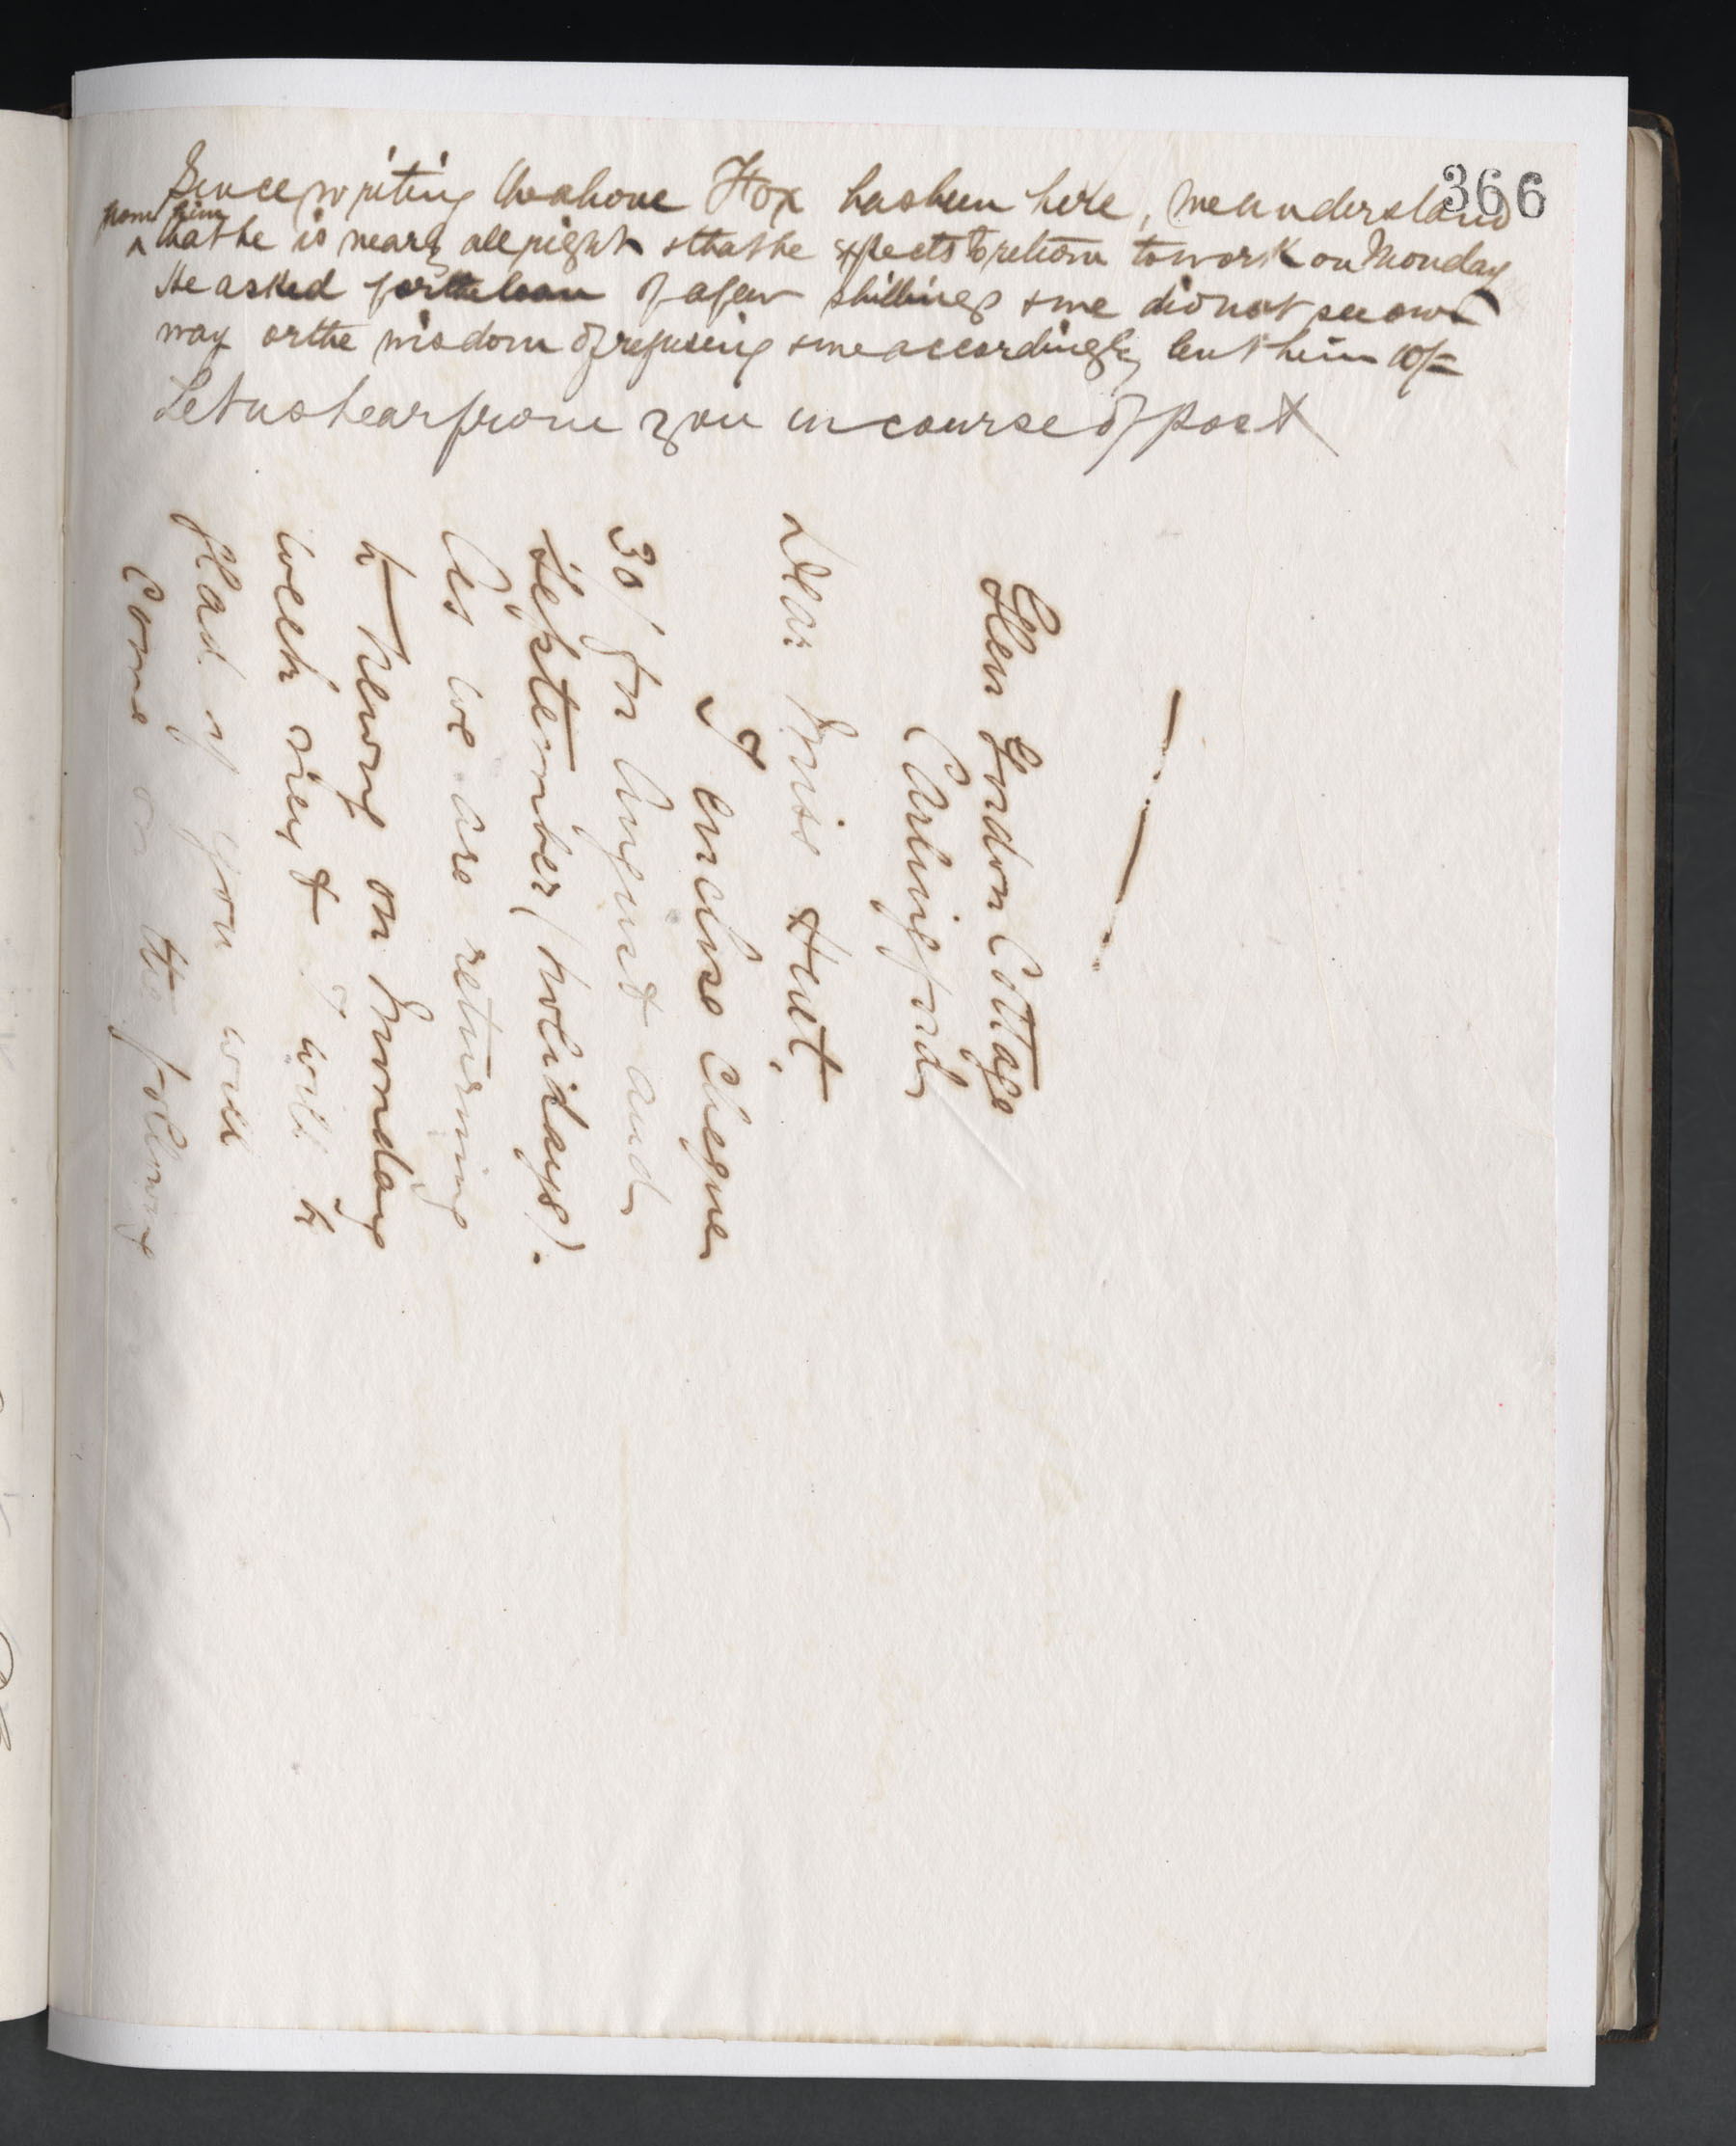 366
Since writing the above Fox has been here, we understand
from him
that he is nearly all right & that he expects to return to work on Monday
He asked for the loan of a few shillings & we did not see our
way or the wisdom of refusing & we accordingly lent him 10/=
Let us hear from you in course of post
Glen Gordon Cottage
Carlingford
Dear Miss
I enclose cheque
30/ for August and
September (holidays).
As we are returning
to Newry on Monday
week next I will be
glad if you will
come on the following